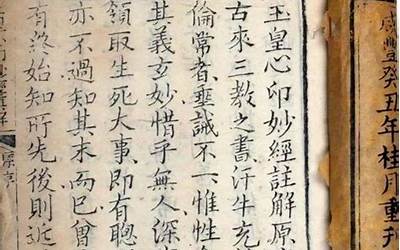 咸豐癸丑年桂月重刋
玉皇心印妙經註解原
古來三教之書汗牛充
倫常者垂誡不一惟性
其義玄妙惜乎無人深
領取生死大事即有聰
亦不過知其末而已曾
有終始知所先後則近